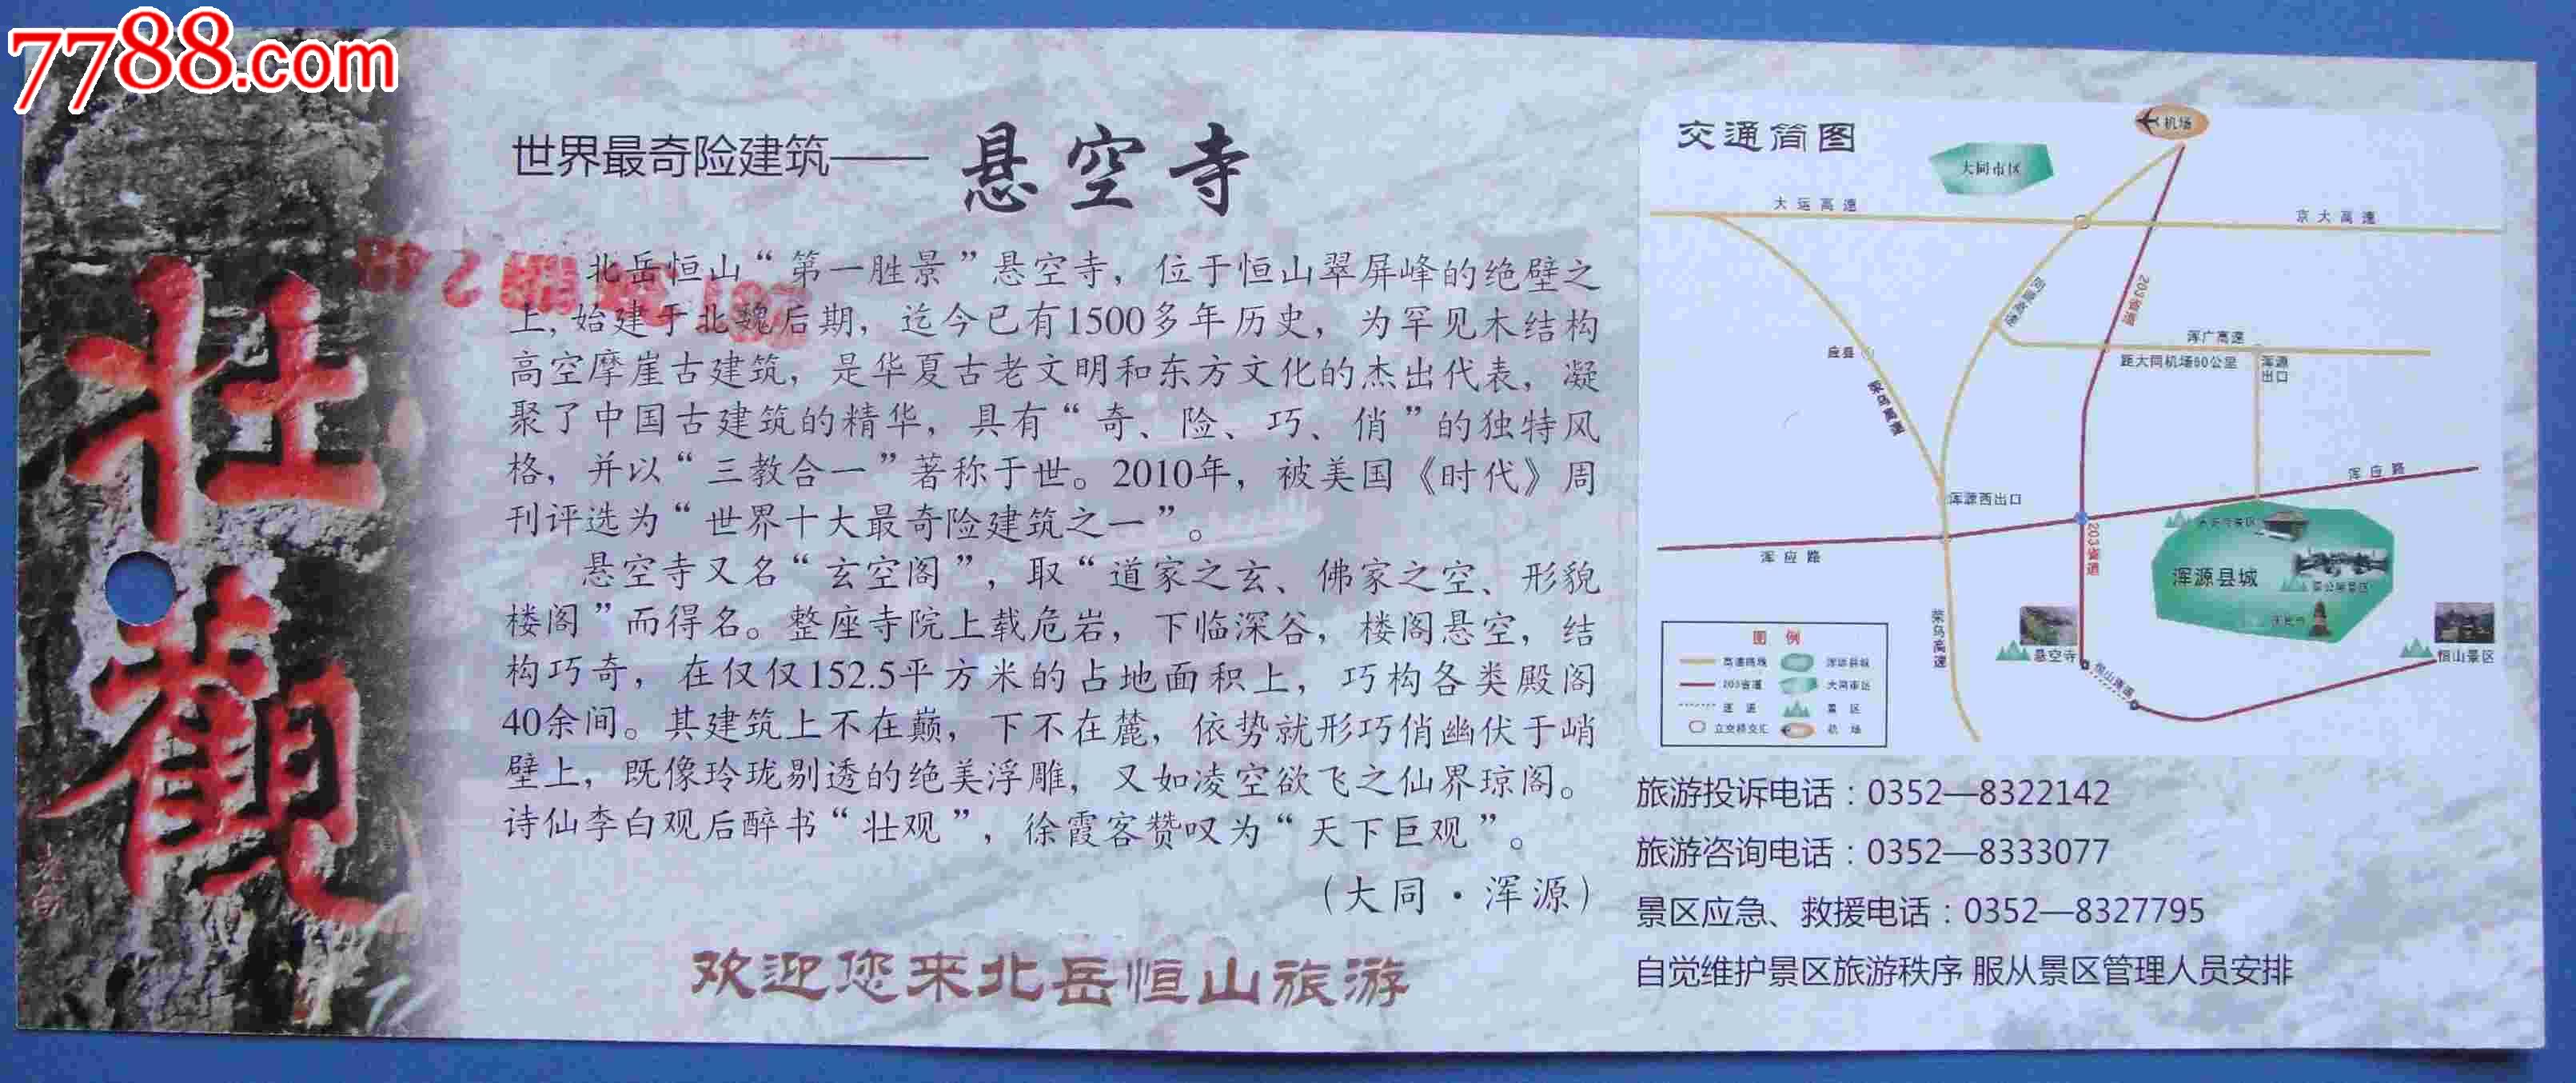 7788.com
壮觀
世界最奇险建筑——悬空寺
北岳恒山“第一胜景”悬空寺，位于恒山翠屏峰的绝壁之
上，始建于北魏后期，迄今已有1500多年历史，为罕见木结构
高空摩崖古建筑，是华夏古老文明和东方文化的杰出代表，凝
聚了中国古建筑的精华，具有“奇、险、巧、俏”的独特风
格，并以“三教合一”著称于世。2010年，被美国《时代》周
刊评选为“世界十大最奇险建筑之一”。
悬空寺又名“玄空阁”，取“道家之玄、佛家之空、形貌
楼阁”而得名。整座寺院上载危岩，下临深谷，楼阁悬空，结
构巧奇，在仅仅152.5平方米的占地面积上，巧构各类殿阁
40余间。其建筑上不在巅，下不在麓，依势就形巧俏幽伏于峭
壁上，既像玲珑剔透的绝美浮雕，又如凌空欲飞之仙界琼阁。
诗仙李白观后醉书“壮观”，徐霞客赞叹为“天下巨观”。
（大同·浑源）
欢迎您来北岳恒山旅游
交通简图
机场
大同市区
大运高速
京大高速
203省道
浑广高速
距大同机场60公里
浑源
出口
应县
荣乌高速
浑源西出口
浑应路
浑应路
203省道
浑源县城
荣乌高速
悬空寺
恒山隧道
恒山景区
图例
高速路线
浑源县城
203省道
大同市区
隧道
景区
立交桥交汇
机场
旅游投诉电话：0352—8322142
旅游咨询电话：0352—8333077
景区应急、救援电话：0352—8327795
自觉维护景区旅游秩序 服从景区管理人员安排